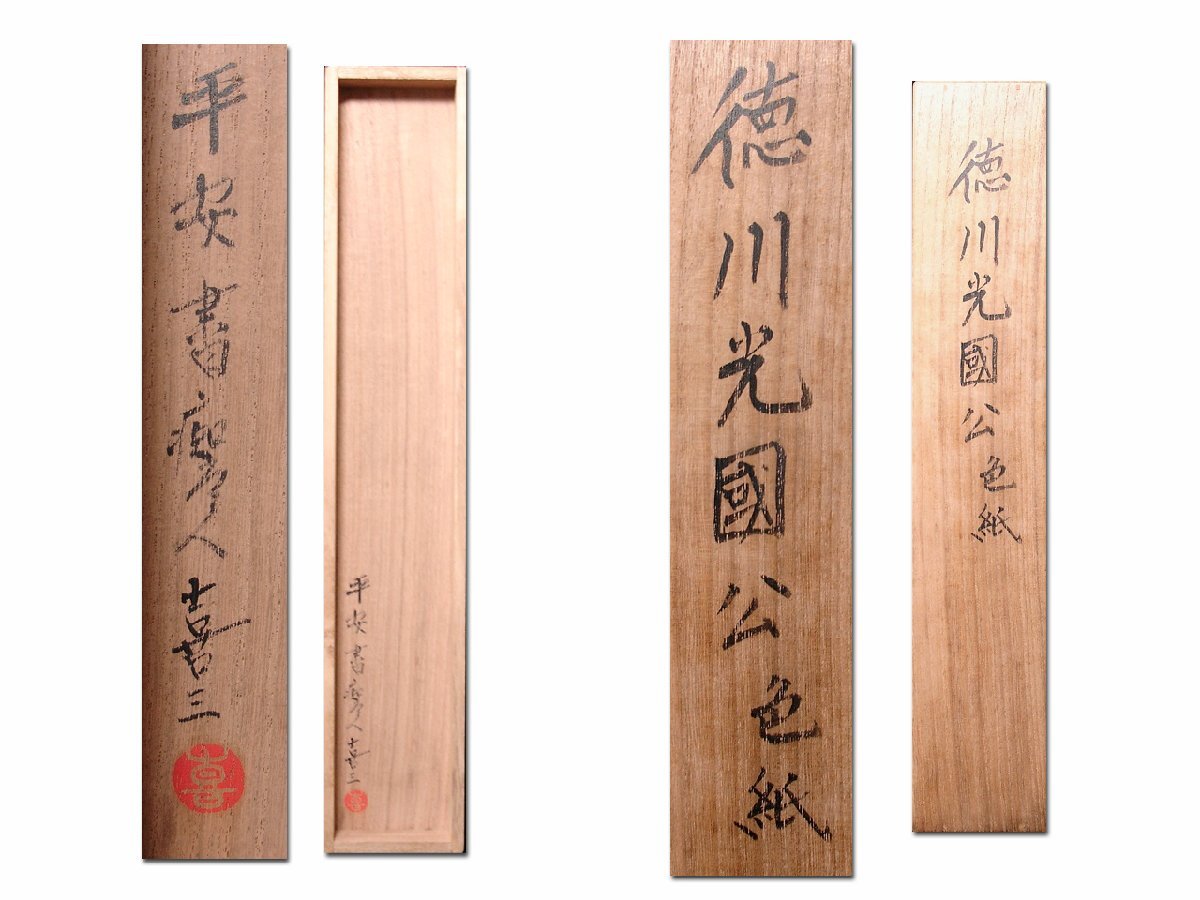 平安書人喜三
喜
平安書人喜三
喜
徳川光國公色紙
徳川光國公色紙